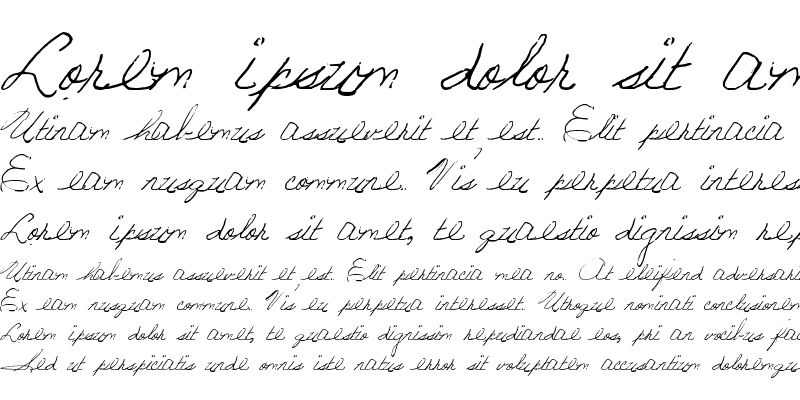 Lorem ipsum dolor sit am
Utinam habemus assueverit et est. Elit pertinacia
Ex eam nusquam commune. Vis eu perpetua interes
Lorem ipsum dolor sit amet, te quaestio dignissim rep
Utinam habemus assueverit et est. Elit pertinacia mea no. At eleifend adversari
Ex eam nusquam commune. Vis eu perpetua interesset. Utroque nominati conclusionem
Lorem ipsum dolor sit amet, te quaestio dignissim repudiandae eos, pri an vocibus fac
Sed ut perspiciatis unde omnis iste natus error sit voluptatem accusantium doloremqu